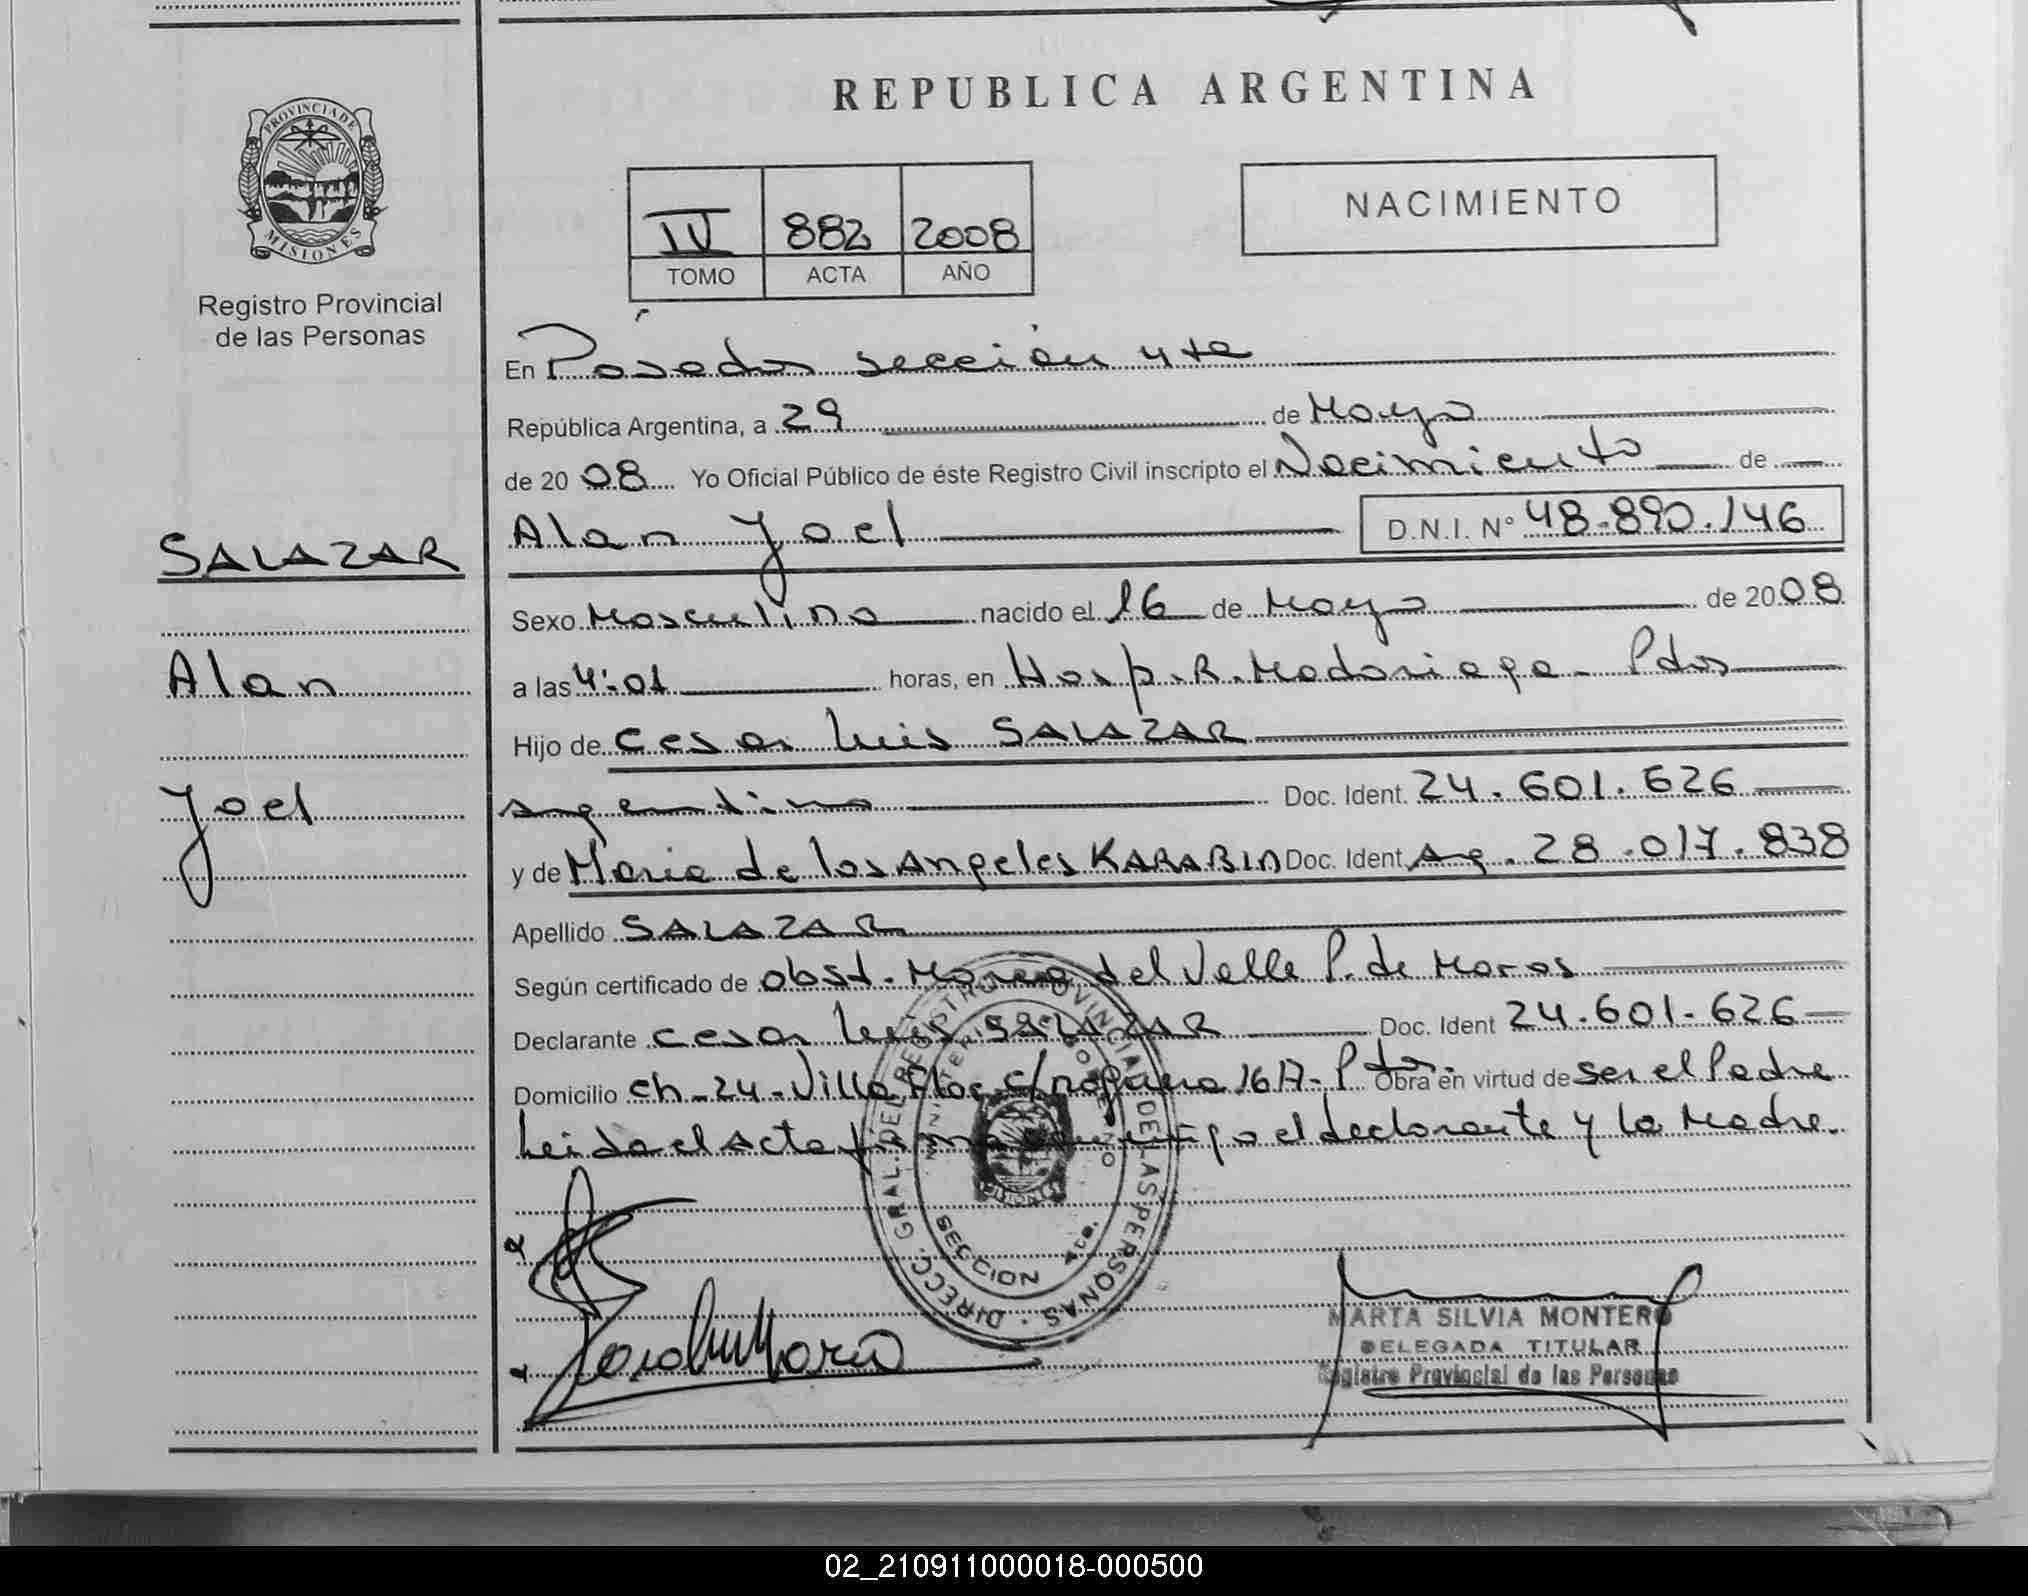 REPUBLICA ARGENTINA
PROVINCIA DE MISIONES
Registro Provincial
de las Personas
NACIMIENTO
IV 882 2008
TOMO ACTA AÑO
En Posadas sección 4ta
República Argentina, a 29 de Mayo
de 2008 Yo Oficial Público de éste Registro Civil inscripto el Nacimiento de
Alan Joel D.N.I. N° 48.890.146
SALAZAR
Alan
Joel
Sexo Masculino nacido el 16 de Mayo de 2008
a las 4:01 horas, en Hosp. R. Madariaga - Pdas
Hijo de Cesar Luis SALAZAR
argentino Doc. Ident. 24.601.626
y de Maria de los Angeles KARABIN Doc. Ident. Arg. 28.017.838
Apellido SALAZAR
Según certificado de obst. Maria del Valle P. de Maros
Declarante Cesar Luis SALAZAR Doc. Ident 24.601.626
Domicilio ch. 24 - Villa Flor Obra en virtud de ser el Padre
Leida el acta firma conmigo el declarante y la Madre.
DIRECC. GRAL. DEL REGISTRO PROVINCIAL DE LAS PERSONAS
MINISTERIO DE GOBIERNO
SECCION 4ta.
MARTA SILVIA MONTERO
DELEGADA TITULAR
Registro Provincial de las Personas
02_210911000018-000500